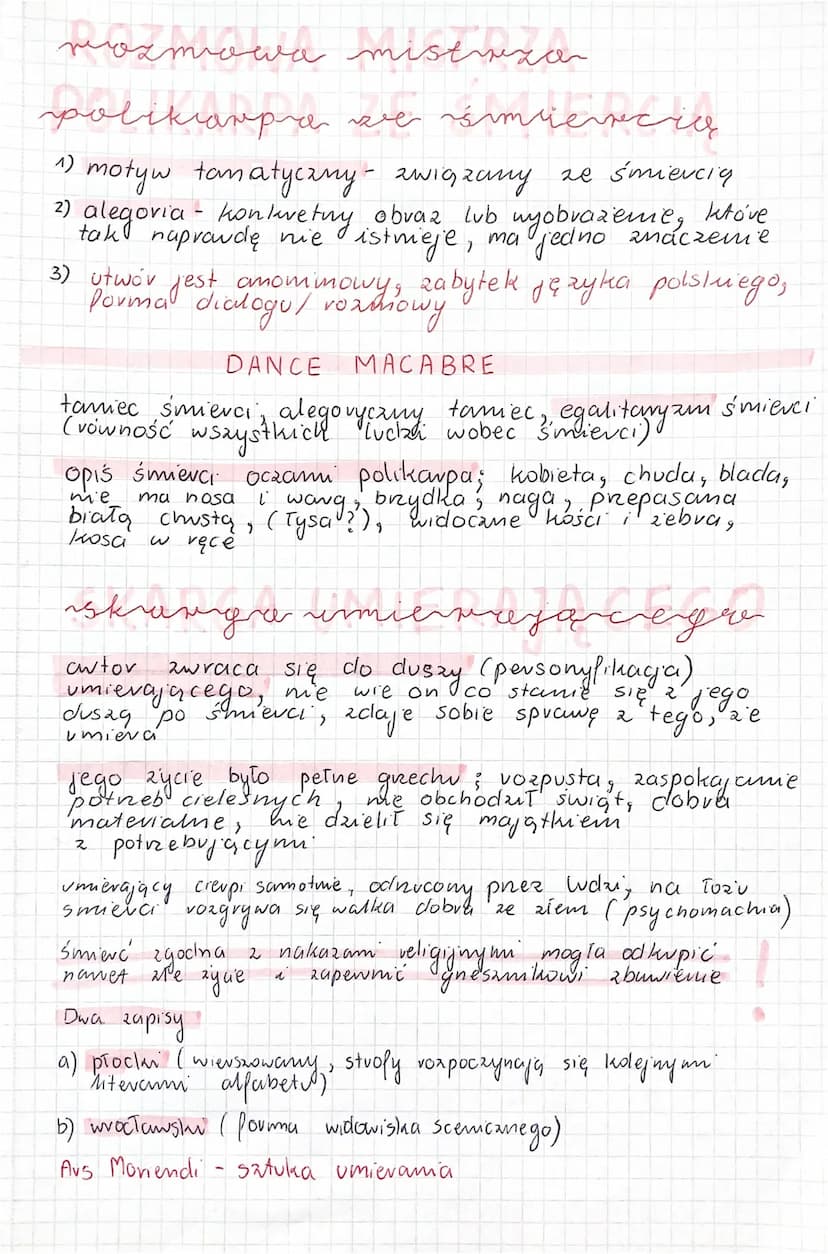 rozmowa mistrza
polikarpa ze śmiercią
1) motyw tanatyczny - związany ze śmiercią
2) alegoria - konkretny obraz lub wyobrażenie, które
tak naprawdę nie istnieje, ma jedno znaczenie
3) utwór jest anonimowy, zabytek języka polskiego,
forma dialogu / rozmowy
DANCE MACABRE
taniec śmierci, alegoryczny taniec, egalitaryzm śmierci
(równość wszystkich ludzi wobec śmierci)
opis śmierci oczami polikarpa; kobieta, chuda, blada,
nie ma nosa i warg, brzydka, naga, przepasana
białą chustą, (łysa?), widoczne kości i żebra,
kosa w ręce
skarga umierającego
autor zwraca się do duszy (personyfikacja)
umierającego, nie wie on co stanie się z jego
duszą po śmierci, zdaje sobie sprawę z tego, że
umiera
jego życie było pełne grzechu; rozpusta, zaspokajanie
potrzeb cielesnych, nie obchodził świąt, dobra
materialne, nie dzielił się majątkiem
z potrzebującymi
umierający cierpi samotnie, odrzucony przez ludzi, na łożu
śmierci rozgrywa się walka dobra ze złem (psychomachia)
śmierć zgodna z nakazami religijnymi mogła odkupić
nawet złe życie i zapewnić grzesznikowi zbawienie !
Dwa zapisy
a) płocki (wierszowany, strofy rozpoczynają się kolejnymi
literami alfabetu)
b) wrocławski (forma widowiska scenicznego)
Ars Moriendi - sztuka umierania